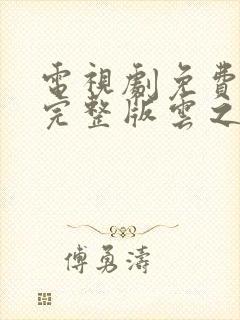 電視劇免費
完整版雲之
傅勇濤